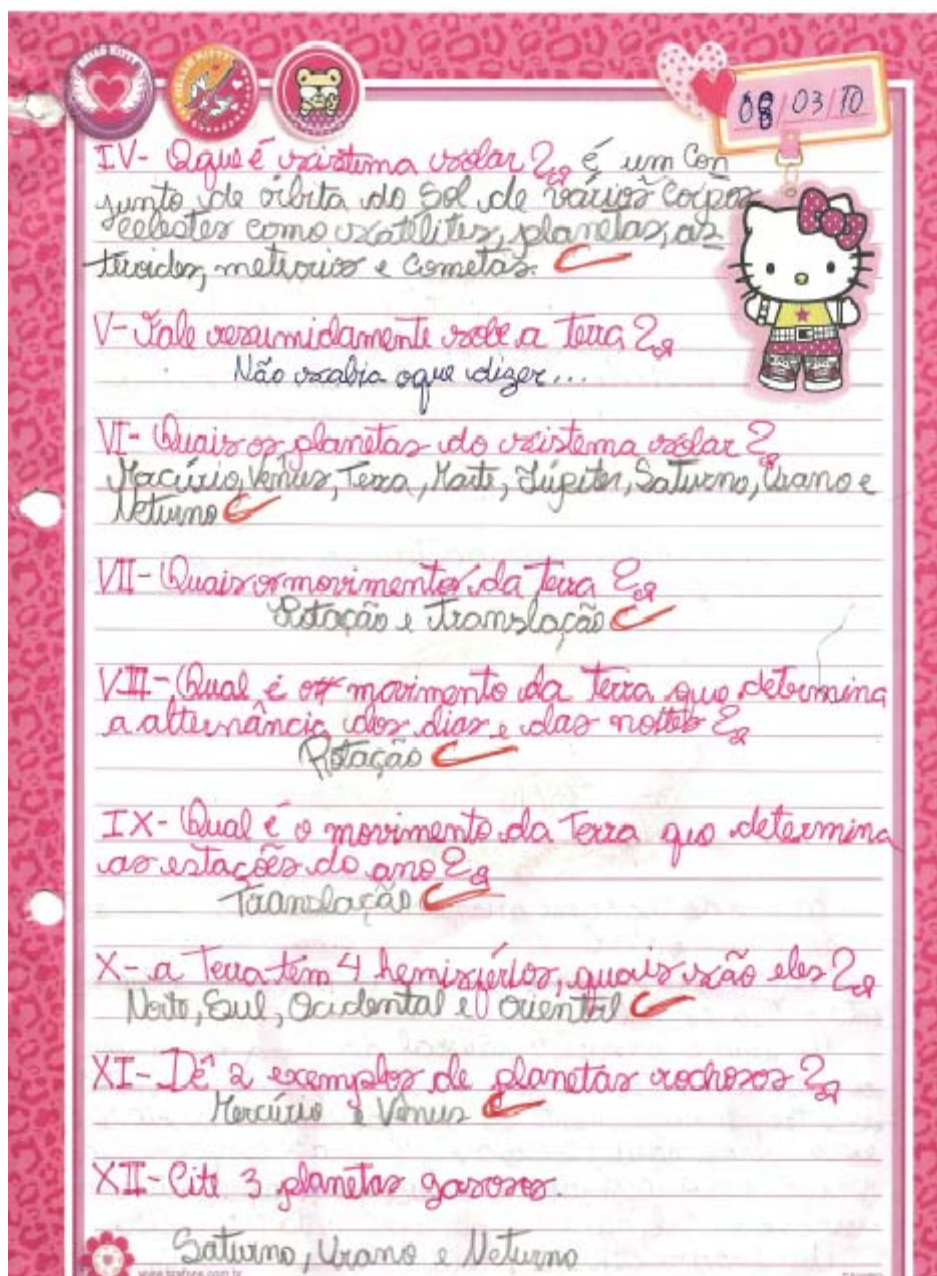 08/03/10
IV- Oque é sistema solar? é um Con
junto de órbita do Sol de vários corpos
celestes como satélites, planetas, as
teroides, metiorio e Cometas.
V- Fale resumidamente sobe a terra?
Não sabia oque dizer...
VI- Quais os planetas do sistema solar?
Mercúrio, Vênus, Terra, Marte, Júpiter, Saturno, Urano e
Neturno
VII- Quais os movimentos da Terra?
Rotação e Translação
VIII- Qual é o movimento da terra que determina
a alternância dos dias e das noites?
Rotação
IX- Qual é o movimento da Terra que determina
as estações do ano?
Translação
X- a Terra tem 4 hemisférios, quais são eles?
Norte, Sul, Ocidental e Oriental
XI- Dê 2 exemplos de planetas rochosos?
Mercúrio e Vênus
XII- Cite 3 planetas gasosos.
Saturno, Urano e Neturno